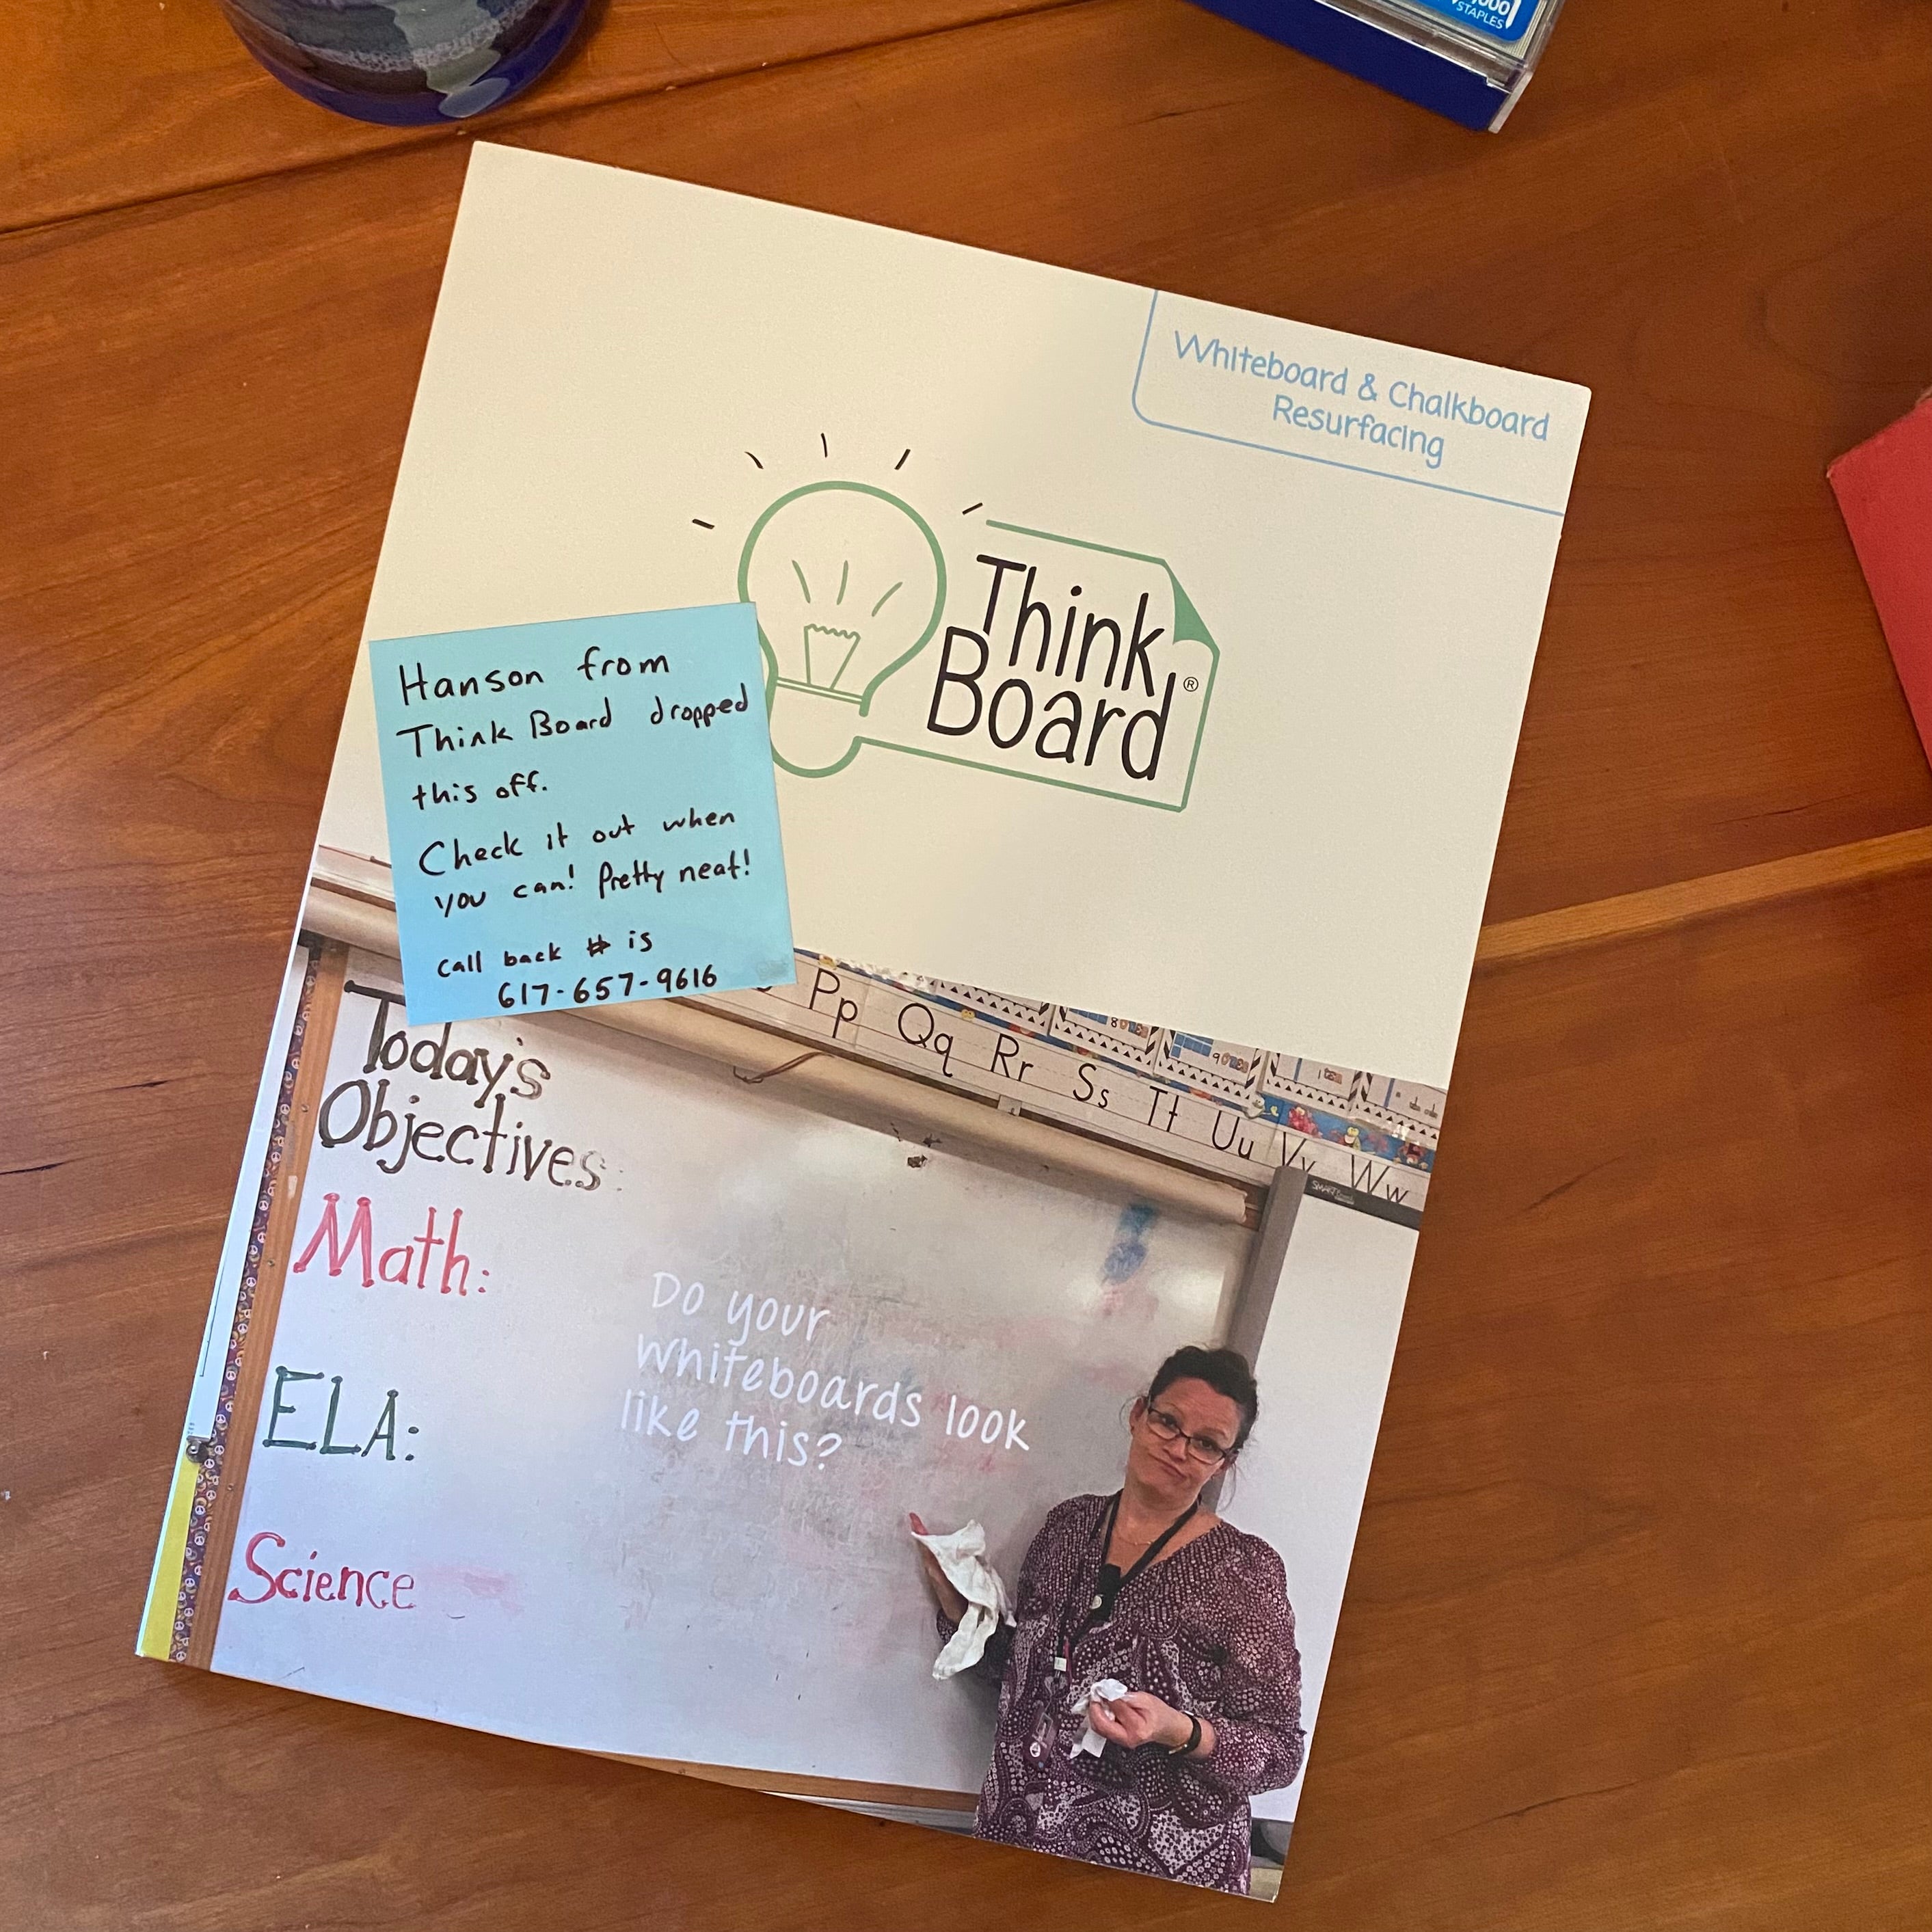 1000
STAPLES
Whiteboard & Chalkboard
Resurfacing
Think
Board®
Hanson from
Think Board dropped
this off.
Check it out when
you can! Pretty neat!
call back # is
617-657-9616
Pp Qq Rr Ss Tt Uu Vv Ww
SMART
Today's
Objectives:
Math:
Do your
whiteboards look
like this?
ELA:
Science